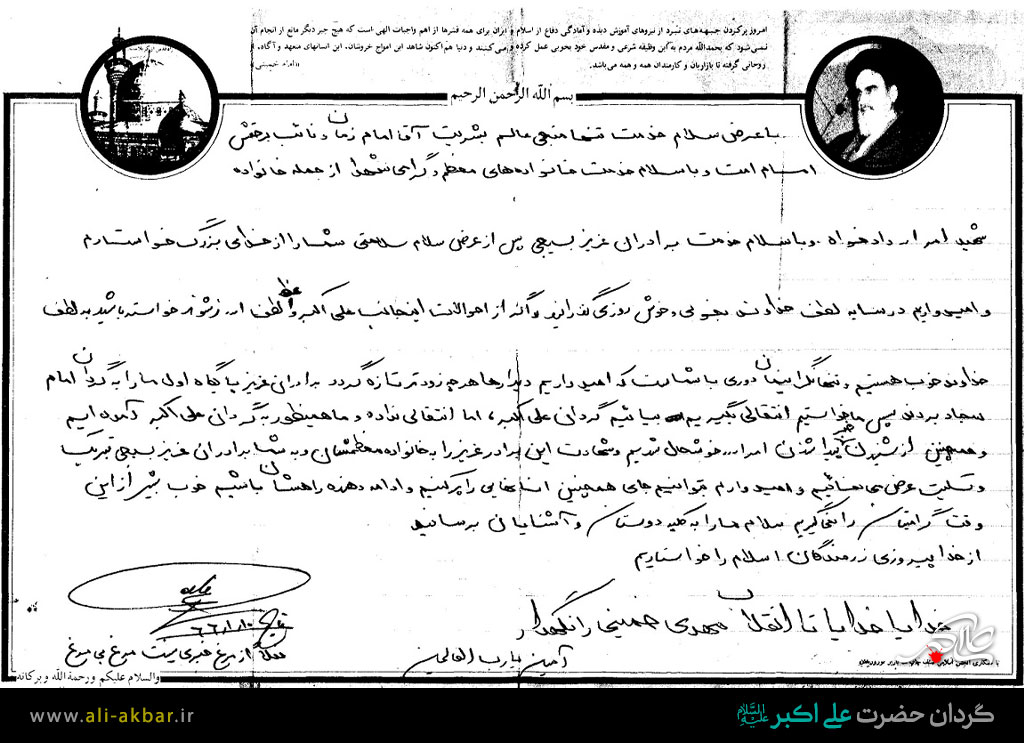 امروز پرکردن جبهه‌های نبرد از نیروهای آموزش دیده و آمادگی دفاع از اسلام و ایران برای همه قشرها از اهم واجبات الهی است که هیچ چیز دیگر مانع از انجام آن
نمی شود که بحمدالله مردم به این وظیفه شرعی و مقدس خود بخوبی عمل کرده و می کنند و دنیا هم اکنون شاهد این امواج خروشان، این انسانهای متعهد و آگاه، از
روحانی گرفته تا بازاریان و کارمندان همه و همه می‌باشد.
«امام خمینی»
بسم الله الرحمن الرحیم
با عرض سلام خدمت تنها منجی عالم بشریت آقا امام زمان و نائب برحقش
امام امت و با سلام خدمت خانواده‌های معظم و گرامی شهدا از جمله خانواده
شهید دادخواه و با سلام خدمت برادران عزیز بسیجی پس از عرض سلام سلامتی شما را از خدای بزرگ خواستارم
و امیدواریم در سایه لطف خداوند بخوبی و خوشی روزگار بگذرانید و اگر از احوالات اینجانب علی اکبر خواسته باشید به لطف
خداوند خوب هستیم و تنها نگرانیمان دوری با شماست که امیدواریم دیدارها هر چه زودتر تازه گردد برادران عزیز پایگاه اول ما را به گردان امام
سجاد بردند پس ما خواستیم انتقالی بگیریم بیائیم گردان علی اکبر، اما انتقالی نداده و ما همینطور به گردان علی اکبر آمده ایم
و همچنین از شنیدن خبر پیدا شدن خوشحال شدیم و شهادت این برادر عزیز را به خانواده معظمشان و به شما برادران عزیز بسیجی تبریک
و تسلیت عرض می نمائیم و امیدوارم بتوانیم جای همچنین انسانهایی را پر کنیم و ادامه دهنده راهشان باشیم خوب بیش از این
وقت گرامیتان را نمی‌گیریم سلام ما را به کلیه دوستان و آشنایان برسانید
از خدا پیروزی رزمندگان اسلام را خواستاریم
خدایا خدایا تا انقلاب مهدی خمینی را نگهدار
آمین یا رب العالمین
تاریخ ۶۶/۱/۲۰
والسلام علیکم ورحمة الله وبرکاته
www.ali-akbar.ir
گردان حضرت علی اکبر علیه السلام